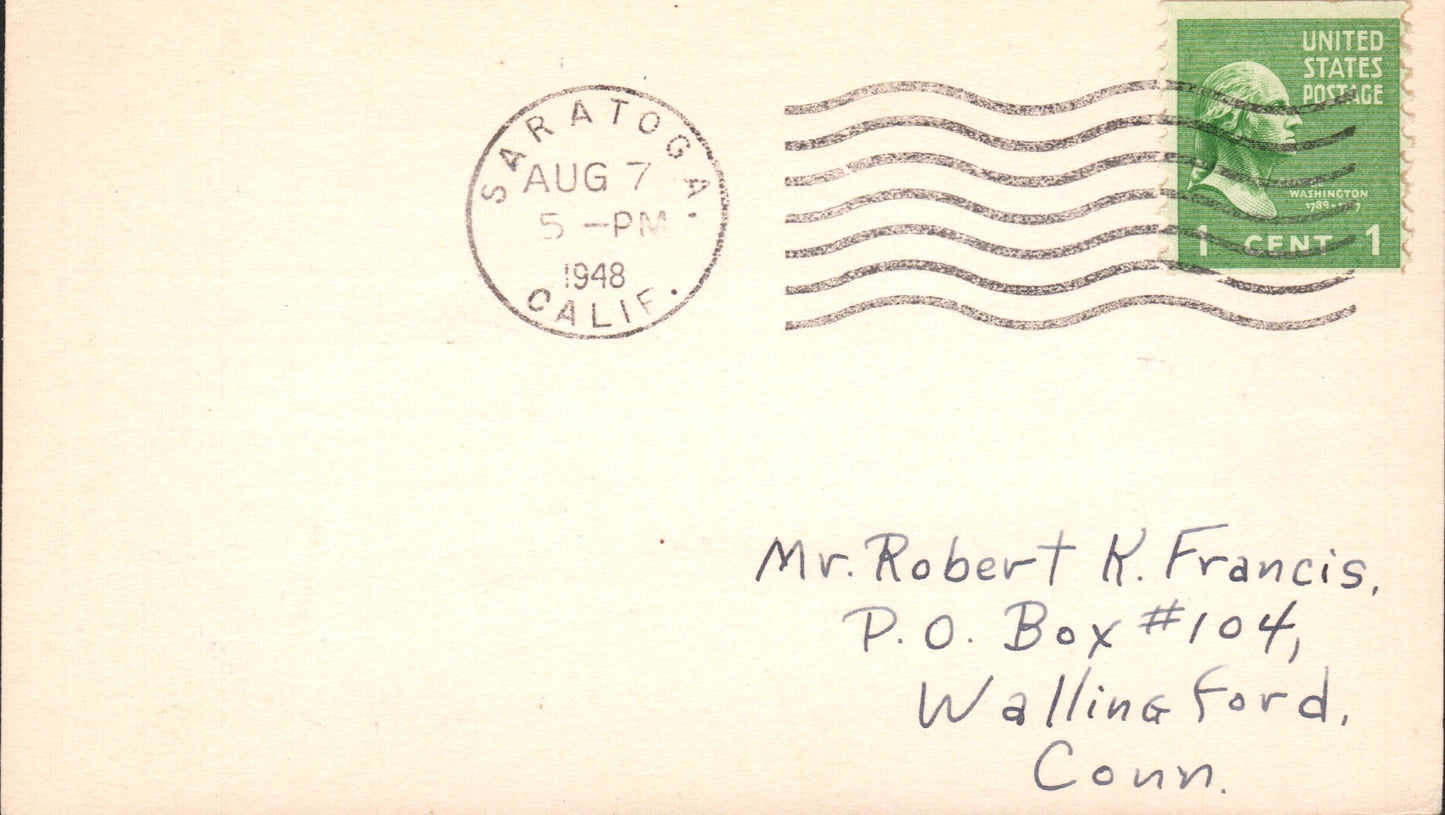 SARATOGA,
AUG 7
5 -PM
1948
CALIF.
UNITED
STATES
POSTAGE
WASHINGTON
1 CENT 1
Mr. Robert K. Francis,
P.O. Box #104,
Wallingford,
Conn.